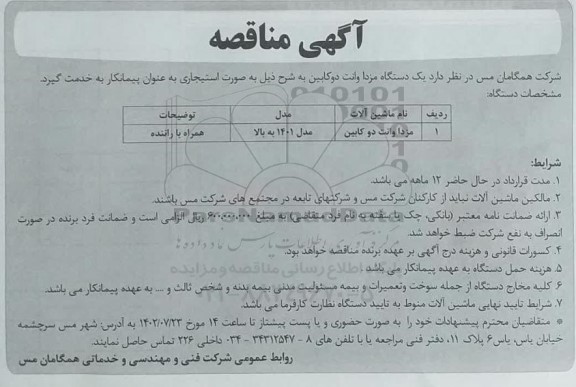 آگهی مناقصه
شرکت همگامان مس در نظر دارد یک دستگاه مزدا وانت دوکابین به شرح ذیل به صورت استیجاری به عنوان پیمانکار به خدمت گیرد.
مشخصات دستگاه:
ردیف نام ماشین آلات مدل توضیحات
۱ مزدا وانت دو کابین مدل ۱۴۰۱ به بالا همراه با راننده
شرایط:
۱. مدت قرارداد در حال حاضر ۱۲ ماهه می باشد.
۲. مالکین ماشین آلات نباید از کارکنان شرکت مس و شرکتهای تابعه در مجتمع های شرکت مس باشند.
۳. ارائه ضمانت نامه معتبر (بانکی، چک یا سفته به نام فرد متقاضی) به مبلغ ریال الزامی است و ضمانت فرد برنده در صورت
انصراف به نفع شرکت ضبط خواهد شد.
۴. کسورات قانونی و هزینه درج آگهی بر عهده برنده مناقصه خواهد بود.
۵. هزینه حمل دستگاه به عهده پیمانکار می باشد.
۶. کلیه مخارج دستگاه از جمله سوخت وتعمیرات و بیمه مسئولیت مدنی بیمه بدنه و شخص ثالث و ... به عهده پیمانکار می باشد.
۷. شرایط تایید نهایی ماشین آلات منوط به تایید دستگاه نظارت کارفرما می باشد.
* متقاضیان محترم پیشنهادات خود را به صورت حضوری و یا پست پیشتاز تا ساعت ۱۴ مورخ ۱۴۰۲/۰۷/۲۳ به آدرس: شهر مس سرچشمه
خیابان یاس، یاس۶ پلاک ۱۱، دفتر فنی مراجعه یا با تلفن های ۸ - ۳۴۳۱۲۵۴۷ - ۰۳۴ داخلی ۲۲۶ تماس حاصل نمایند.
روابط عمومی شرکت فنی و مهندسی و خدماتی همگامان مس